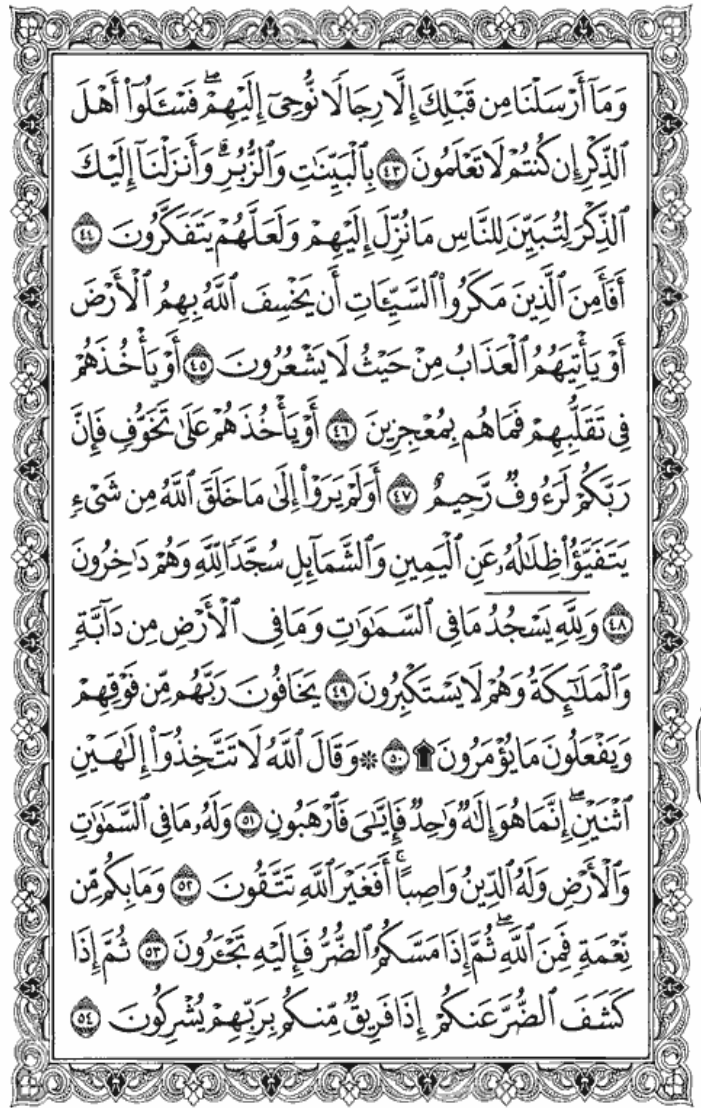 وَمَآ أَرْسَلْنَا مِن قَبْلِكَ إِلَّا رِجَالًا نُّوحِىٓ إِلَيْهِمْ ۖ فَسْـَٔلُوٓا۟ أَهْلَ
ٱلذِّكْرِ إِن كُنتُمْ لَا تَعْلَمُونَ ٤٣ بِٱلْبَيِّنَـٰتِ وَٱلزُّبُرِ ۗ وَأَنزَلْنَآ إِلَيْكَ
ٱلذِّكْرَ لِتُبَيِّنَ لِلنَّاسِ مَا نُزِّلَ إِلَيْهِمْ وَلَعَلَّهُمْ يَتَفَكَّرُونَ ٤٤
أَفَأَمِنَ ٱلَّذِينَ مَكَرُوا۟ ٱلسَّيِّـَٔاتِ أَن يَخْسِفَ ٱللَّهُ بِهِمُ ٱلْأَرْضَ
أَوْ يَأْتِيَهُمُ ٱلْعَذَابُ مِنْ حَيْثُ لَا يَشْعُرُونَ ٤٥ أَوْ يَأْخُذَهُمْ
فِى تَقَلُّبِهِمْ فَمَا هُم بِمُعْجِزِينَ ٤٦ أَوْ يَأْخُذَهُمْ عَلَىٰ تَخَوُّفٍ فَإِنَّ
رَبَّكُمْ لَرَءُوفٌ رَّحِيمٌ ٤٧ أَوَلَمْ يَرَوْا۟ إِلَىٰ مَا خَلَقَ ٱللَّهُ مِن شَىْءٍ
يَتَفَيَّؤُا۟ ظِلَـٰلُهُۥ عَنِ ٱلْيَمِينِ وَٱلشَّمَآئِلِ سُجَّدًا لِّلَّهِ وَهُمْ دَٰخِرُونَ
٤٨ وَلِلَّهِ يَسْجُدُ مَا فِى ٱلسَّمَـٰوَٰتِ وَمَا فِى ٱلْأَرْضِ مِن دَآبَّةٍ
وَٱلْمَلَـٰٓئِكَةُ وَهُمْ لَا يَسْتَكْبِرُونَ ٤٩ يَخَافُونَ رَبَّهُم مِّن فَوْقِهِمْ
وَيَفْعَلُونَ مَا يُؤْمَرُونَ ۩ ٥٠ ۞ وَقَالَ ٱللَّهُ لَا تَتَّخِذُوٓا۟ إِلَـٰهَيْنِ
ٱثْنَيْنِ ۖ إِنَّمَا هُوَ إِلَـٰهٌ وَٰحِدٌ فَإِيَّـٰىَ فَٱرْهَبُونِ ٥١ وَلَهُۥ مَا فِى ٱلسَّمَـٰوَٰتِ
وَٱلْأَرْضِ وَلَهُ ٱلدِّينُ وَاصِبًا ۚ أَفَغَيْرَ ٱللَّهِ تَتَّقُونَ ٥٢ وَمَا بِكُم مِّن
نِّعْمَةٍ فَمِنَ ٱللَّهِ ۖ ثُمَّ إِذَا مَسَّكُمُ ٱلضُّرُّ فَإِلَيْهِ تَجْـَٔرُونَ ٥٣ ثُمَّ إِذَا
كَشَفَ ٱلضُّرَّ عَنكُمْ إِذَا فَرِيقٌ مِّنكُم بِرَبِّهِمْ يُشْرِكُونَ ٥٤